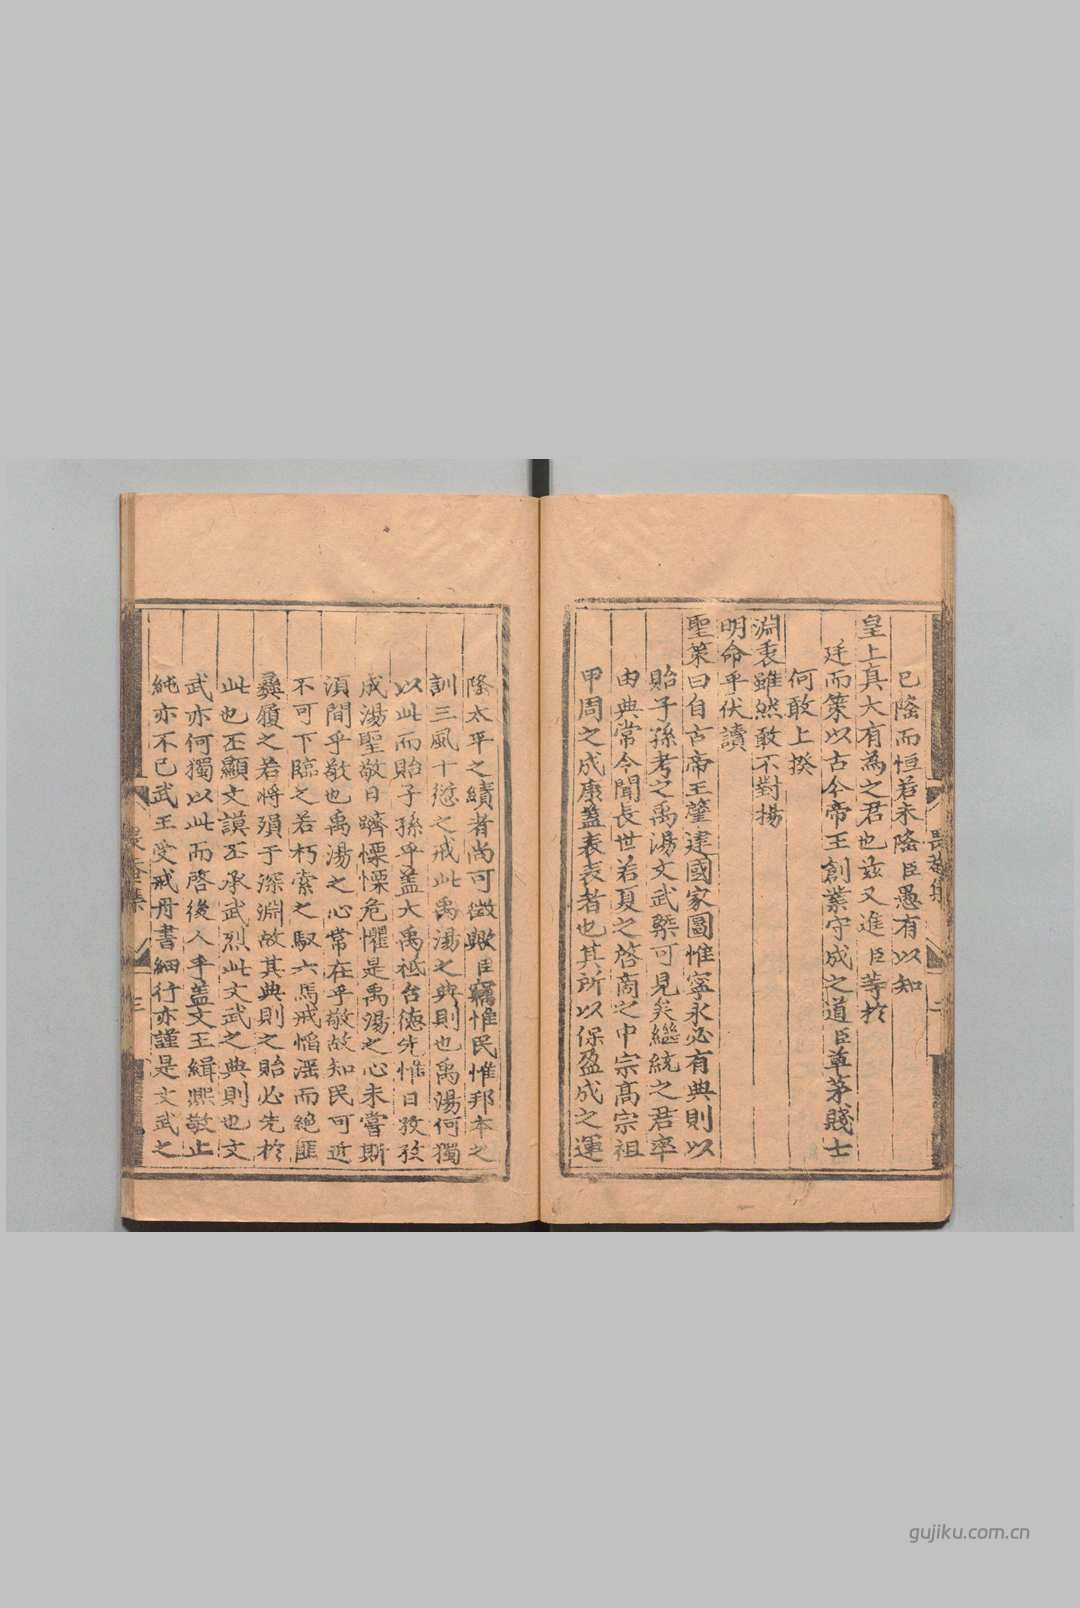 已隆而恒若未隆臣愚有以知
皇上真大有為之君也茲又進臣等扵
廷而策以古今帝王創業守成之道臣草茅賤士
何敢上揆
淵衷雖然敢不對揚
明命乎伏讀
聖策曰自古帝王肇建國家圖惟寧永必有典則以
貽子孫考之禹湯文武槩可見矣繼統之君率
由典常令聞長世若夏之啓商之中宗高宗祖
甲周之成康蓋表表者也其所以保盈成之運
二
隆太平之績者尚可徵歟臣竊惟民惟邦本之
訓三風十愆之戒此禹湯之典則也禹湯何獨
以此而貽子孫乎盖大禹祗台德先惟日孜孜
成湯聖敬日躋慄慄危懼是禹湯之心未嘗斯
湏間乎敬也禹湯之心常在乎敬故知民可近
不可下臨之若朽索之馭六馬戒慆滛而絶匪
彝頠之若將殞于深淵故其典則之貽必先扵
此也丕顯文謨丕承武烈此文武之典則也文
武亦何獨以此而啓後人乎盖文王緝熙敬止
純亦不已武王受戒丹書細行亦謹是文武之
三
gujiku.com.cn